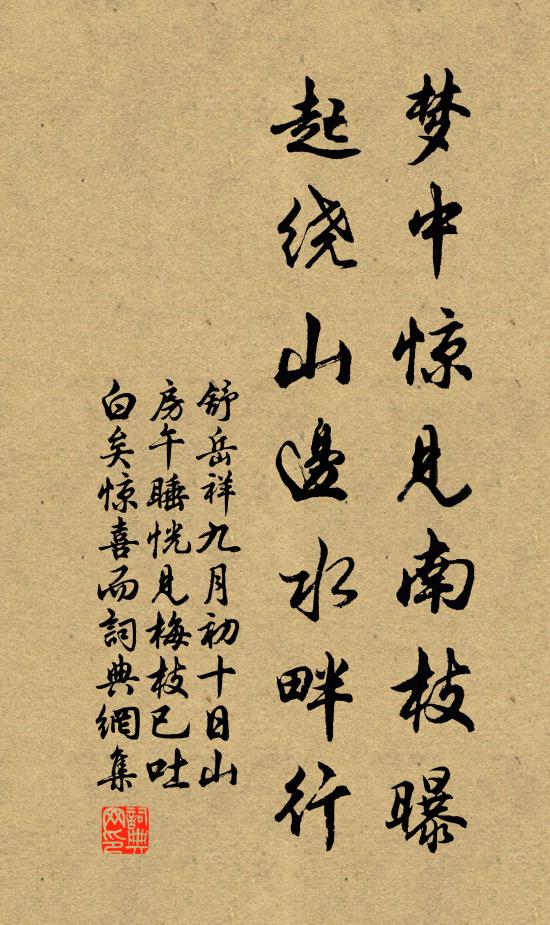 梦中惊见南枝曝
起绕山邊水畔行
舒岳祥九月初十日山
房午睡恍见梅枝已吐
白矣惊喜而詞典網集
詞典网印